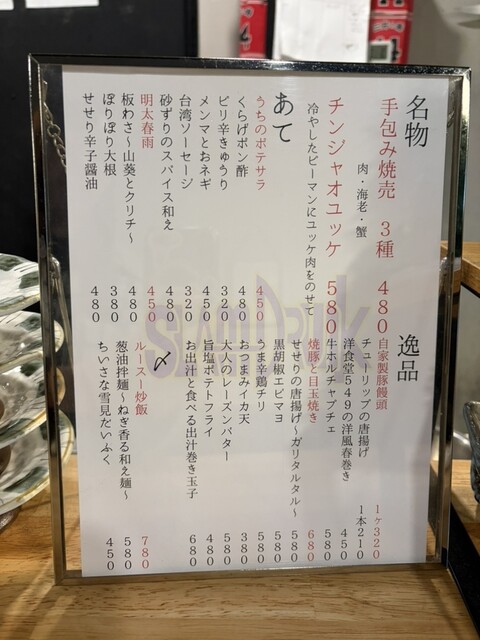 名物
手包み焼売 3種 480
肉・海老・蟹
チンジャオユッケ 580
冷やしたピーマンにユッケ肉をのせて
あて
うちのポテサラ 450
くらげポン酢 480
ピリ辛きゅうり 320
メンマとおネギ 450
台湾ソーセージ 320
砂ずりのスパイス和え 480
明太春雨 450
板わさ～山葵とクリチ～ 480
ぽりぽり大根 380
せせり辛子醤油 480
逸品
自家製豚饅頭 1ヶ320
チューリップの唐揚げ 1本210
洋食堂549の洋風春巻き 450
牛ホルチャプチェ 580
焼豚と目玉焼き 680
せせりの唐揚げ～ガリタルタル～ 580
黒胡椒エビマヨ 580
うま辛鶏チリ 580
おつまみイカ天 380
大人のレーズンバター 580
旨塩ポテトフライ 480
お出汁と食べる出汁巻き玉子 680
〆
ルーロー炒飯 780
葱油拌麺～ねぎ香る和え麺～ 580
ちいさな雪見だいふく 450